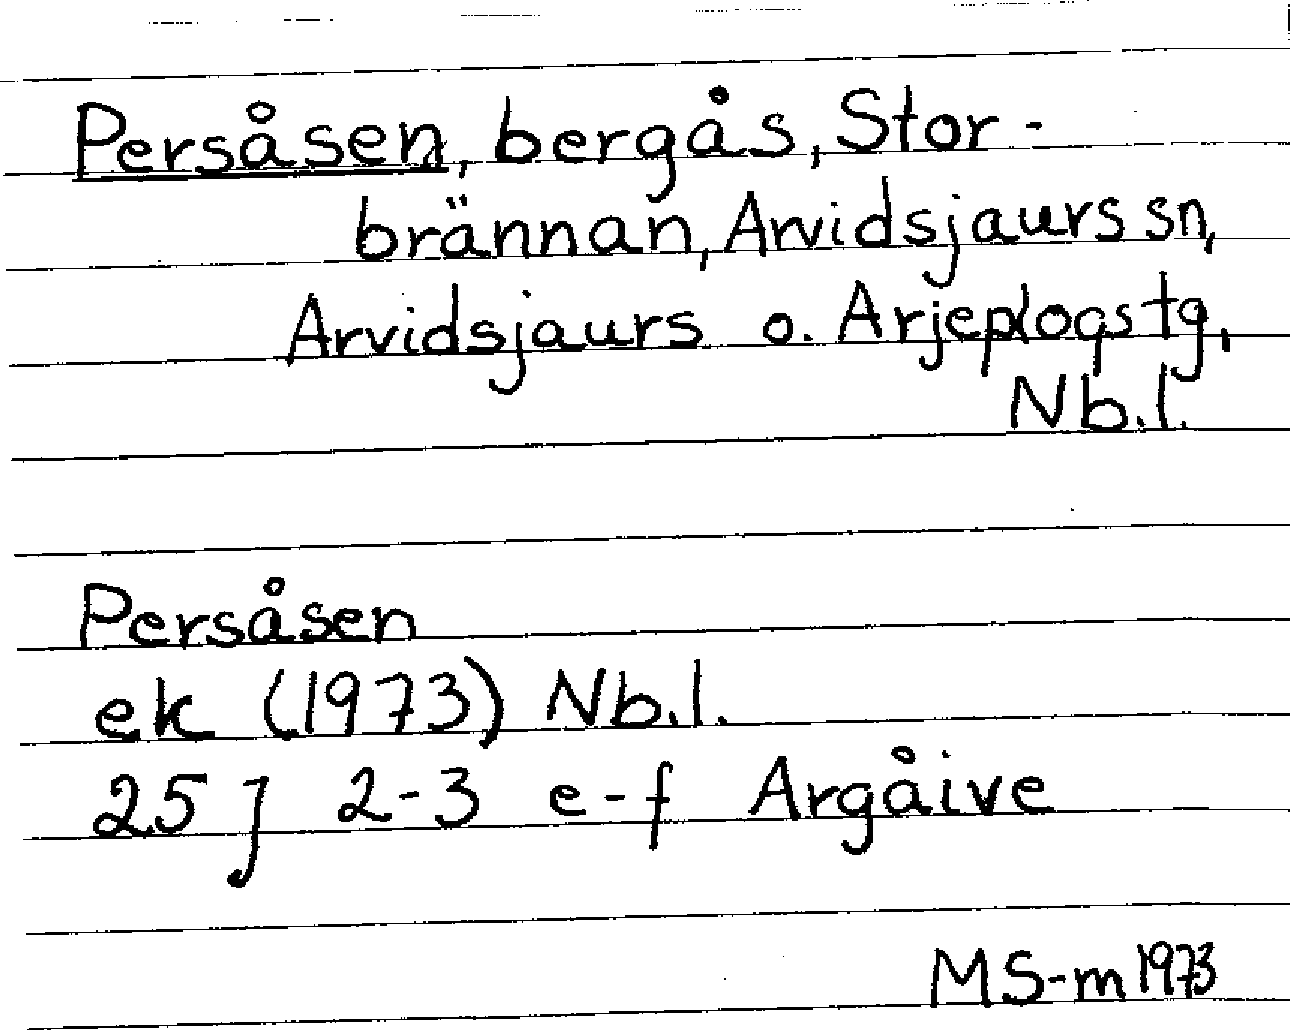 Persåsen, bergås, Stor-
brännan, Arvidsjaurs sn,
Arvidsjaurs o. Arjeplogs tg,
Nb.l.
Persåsen
ek (1973) Nb.l.
25 J 2-3 e-f Argåive
MS-m 1973